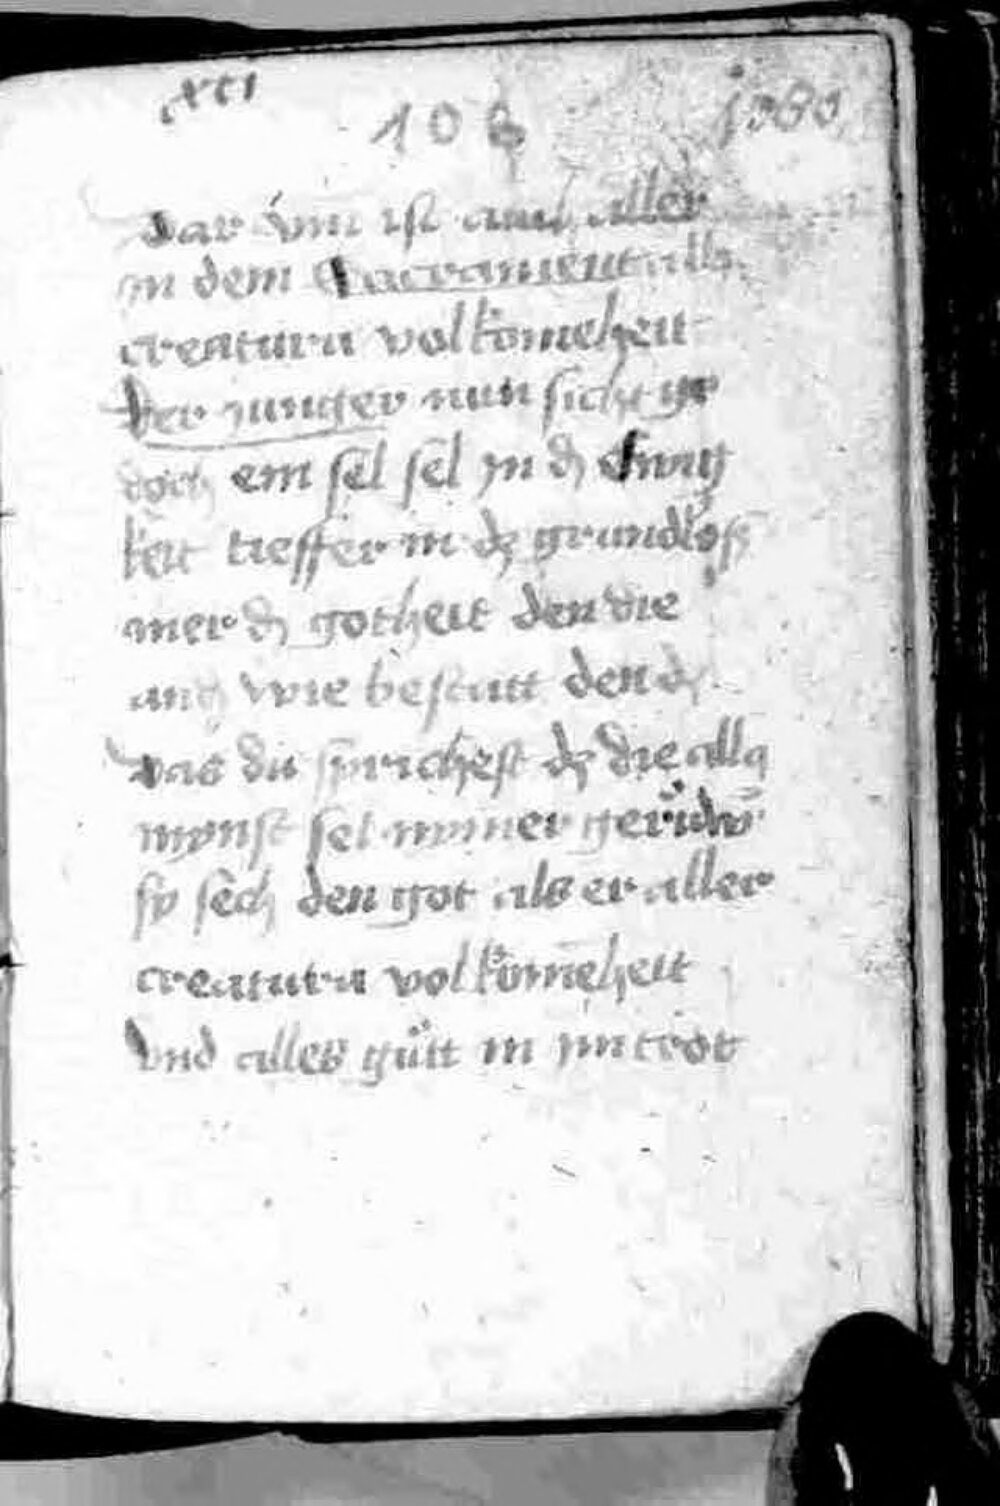 xci
106
dar vm ist auch aller
in dem Sacrament alle
creatura volkomēheit
Der iunger nun sicht yr
doch ein sel sel in dz Ewig
keit tieffer in dz grundloß
mer dz gotheit den die
ander wie bestatt den dz
das du sprichest dz die aller
mynst sel nymer gerüdwē
so sech den got als er aller
creatura volkomēheit
Vnd alles gütt in im trot